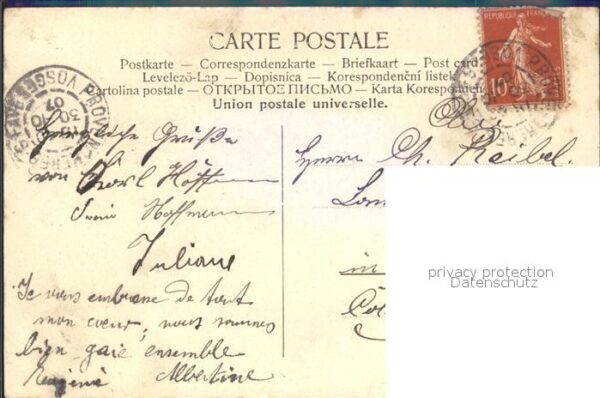 CARTE POSTALE
Postkarte — Correspondenzkarte — Briefkaart — Post card
Levelező-Lap — Dopisnica — Korespondenční listek
Cartolina postale — ОТКРЫТОЕ ПИСЬМО — Karta Korespondencyjna
Union postale universelle.
RÉPUBLIQUE FRANÇAISE
10
VOSGES
PROVENCHÈRES
30
10
07
An
Herzliche Grüße
von Karl Hoffmann
Hoffmann
Juliane
Je vous embrasse de tout
mon cœur, nous sommes
bien gaie ensemble
Eugénie Albertine
Herrn Ch. Reibel.
in
privacy protection
Datenschutz